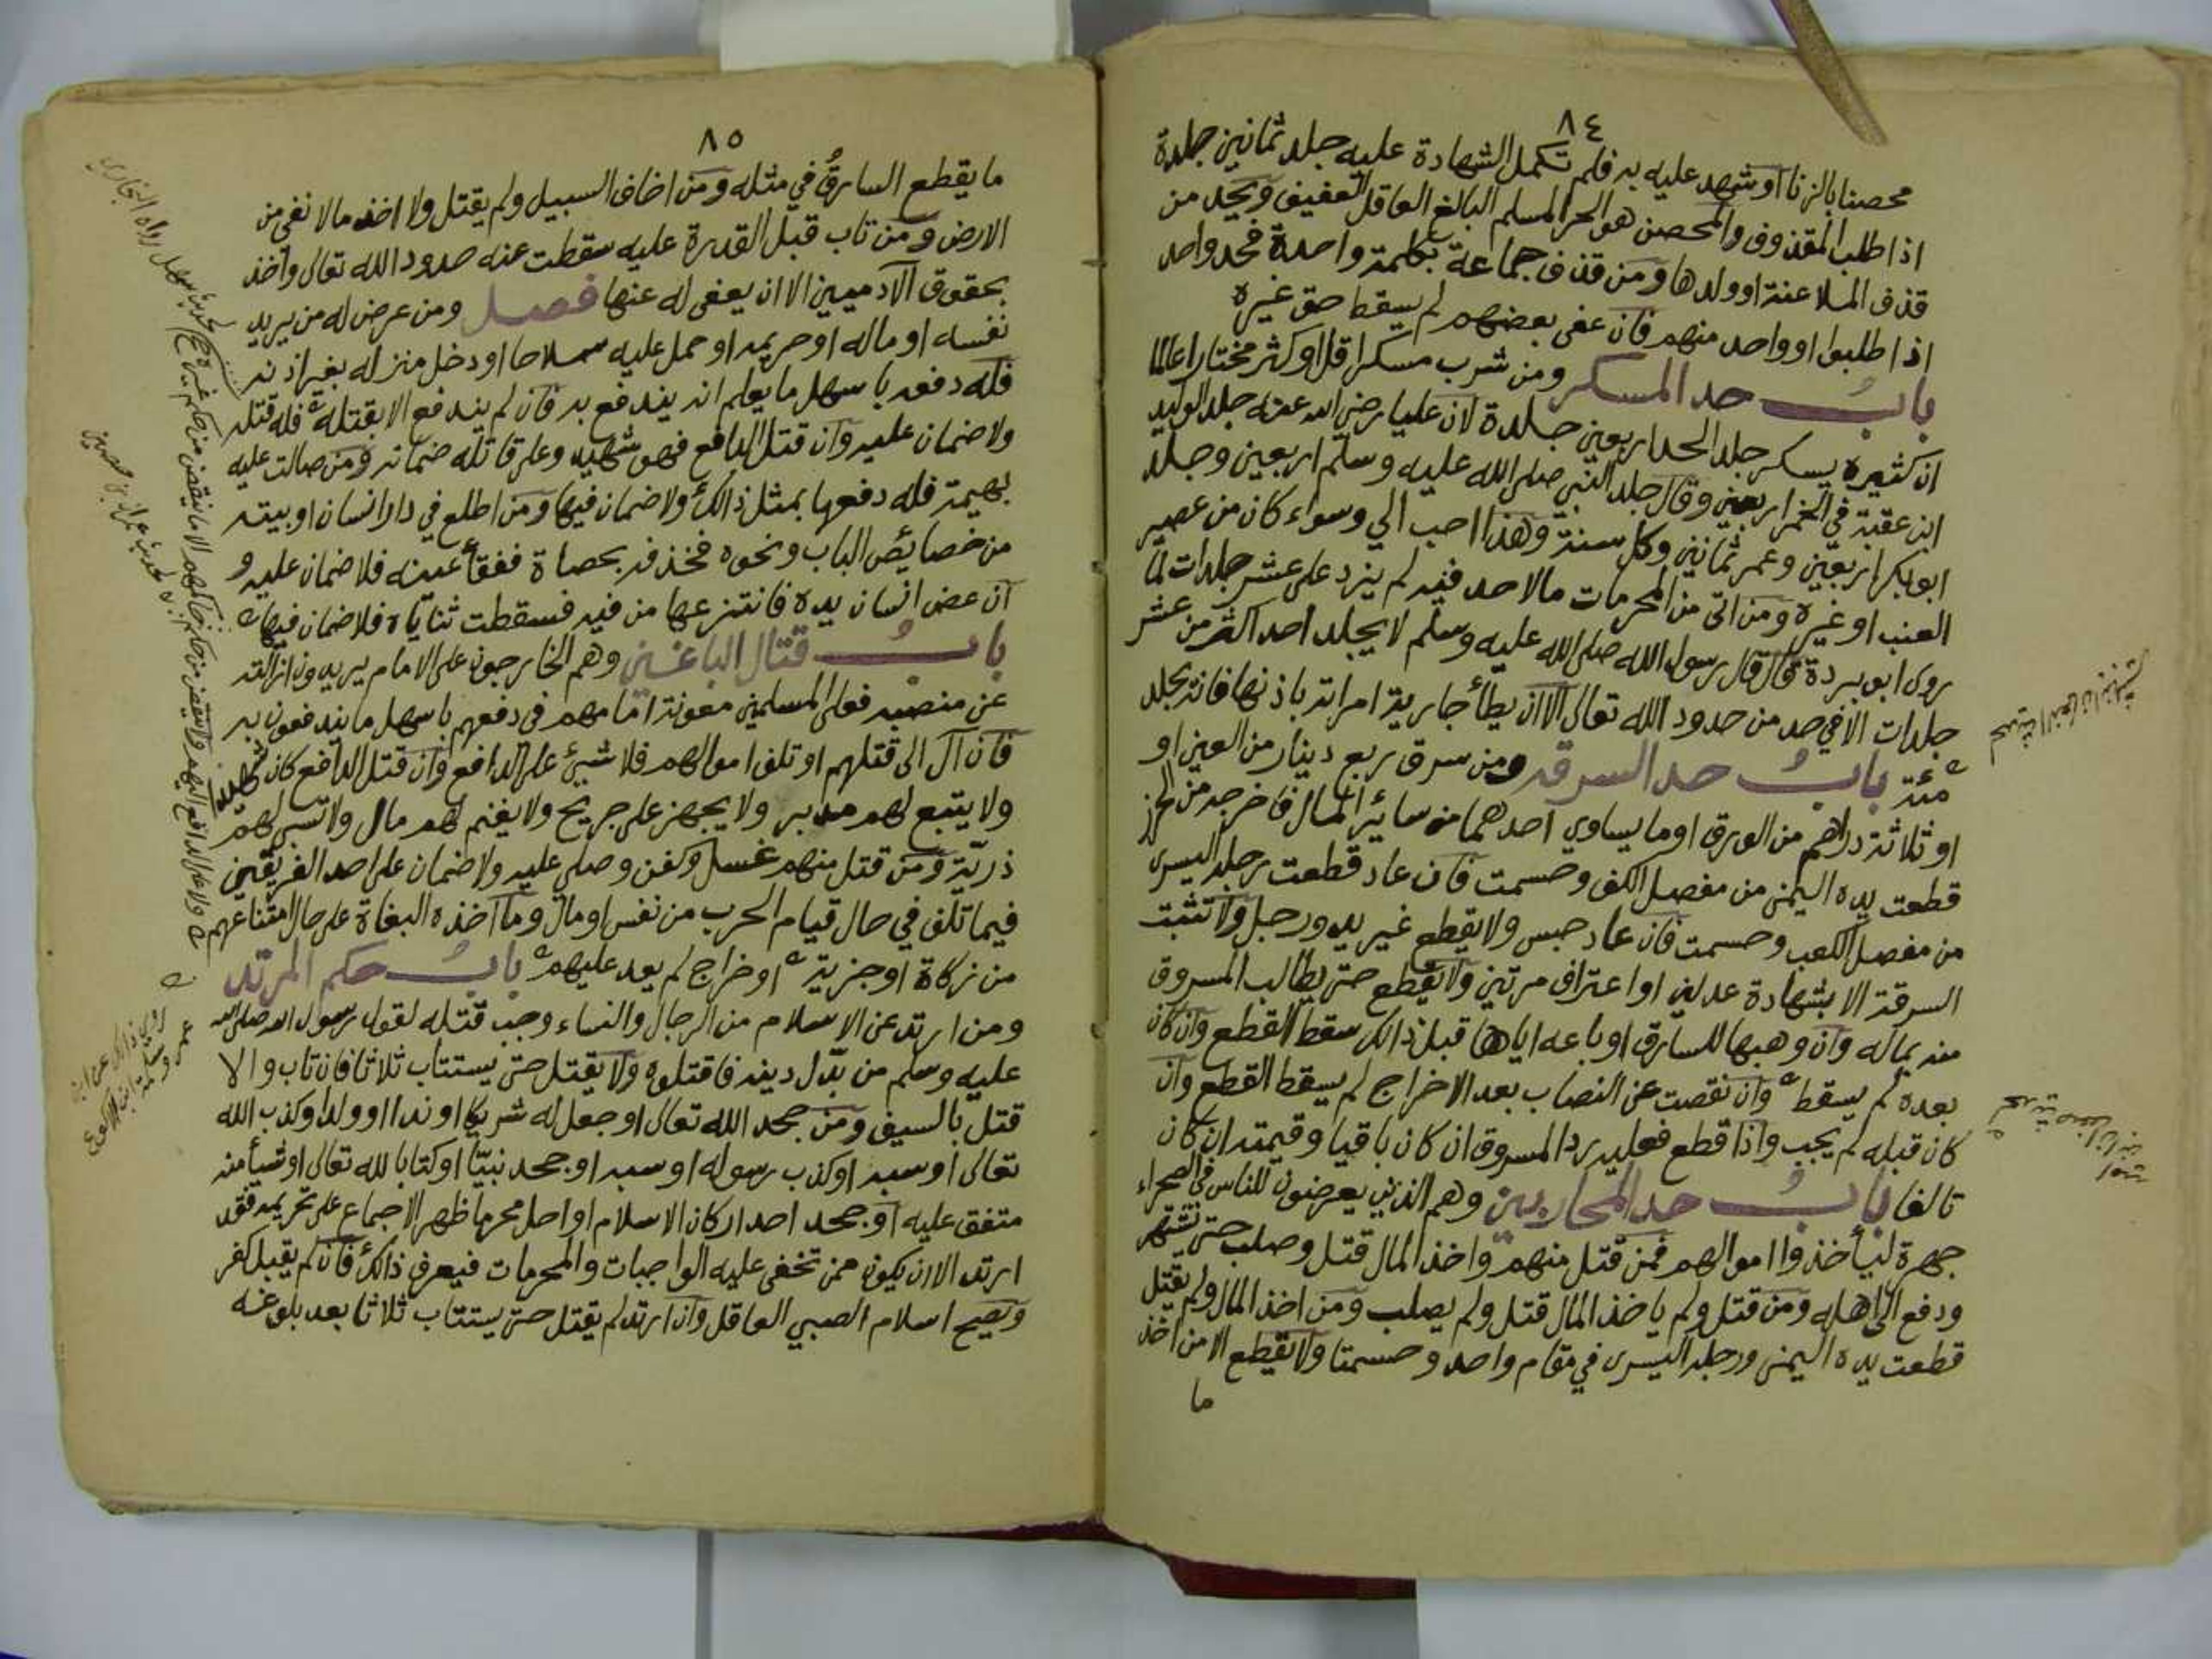 ٨٤
محصنا بالزنا او شهد عليه به فلم تكمل الشهادة عليه جلد ثمانين جلدة
اذا طلب المقذوف والمحصن هو الحر المسلم البالغ العاقل العفيف ويحد من
قذف الملاعنة او ولدها ومن قذف جماعة بكلمة واحدة فحد واحد
اذا طلبوا او واحد منهم فان عفى بعضهم لم يسقط حق غيره
باب حد المسكر ومن شرب مسكرا قل او كثر مختارا عالما
ان كثيره يسكر جلد الحد اربعين جلدة لان عليا رضي الله عنه جلد الوليد
ابن عقبة في الخمر اربعين وقال جلد النبي صلى الله عليه وسلم اربعين وجلد
ابو بكر اربعين وعمر ثمانين وكل سنة وهذا احب الي وسواء كان من عصير
العنب او غيره ومن اتى من المحرمات مالا حد فيه لم يزد على عشر جلدات لما
روى ابو بردة قال قال رسول الله صلى الله عليه وسلم لا يجلد احد اكثر من عشر
جلدات الا في حد من حدود الله تعالى الا ان يطأ جارية امراته باذنها فانه يجلد
مئة باب حد السرقة ومن سرق ربع دينار من العين او
او ثلاثة دراهم من الورق او ما يساوي احدهما من سائر المال فاخرجه من الحرز
قطعت يده اليمنى من مفصل الكف وحسمت فان عاد قطعت رجله اليسرى
من مفصل الكعب وحسمت فان عاد حبس ولا يقطع غير يد ورجل ولا تثبت
السرقة الا بشهادة عدلين او اعتراف مرتين ولا يقطع حتى يطالب المسروق
منه بماله وان وهبها للسارق او باعه اياها قبل ذالك سقط القطع وان كان
بعده لم يسقط وان نقصت عن النصاب بعد الاخراج لم يسقط القطع وان
كان قبله لم يجب واذا قطع فعليه رد المسروق ان كان باقيا وقيمته ان كان
تالفا باب حد المحاربين وهم الذين يعرضون للناس في الصحراء
جهرة ليأخذوا اموالهم فمن قتل منهم واخذ المال قتل وصلب حتى تشتهر
ودفع الى اهله ومن قتل ولم ياخذ المال قتل ولم يصلب ومن اخذ المال ولم يقتل
قطعت يده اليمنى ورجله اليسرى في مقام واحد وحسمتا ولا يقطع الا من اخذ
ما
٨٥
ما يقطع السارق في مثله ومن اخاف السبيل ولم يقتل ولا اخذ مالا نفي من
الارض ومن تاب قبل القدرة عليه سقطت عنه حدود الله تعالى واخذ
بحقوق الآدميين الا ان يعفى له عنها فصل ومن عرض له من يريد
نفسه او ماله او حريمه او حمل عليه سلاحا او دخل منزله بغير اذنه
فله دفعه باسهل ما يعلم انه يندفع به فان لم يندفع الا بقتله فله قتله
ولا ضمان عليه وان قتل الدافع فهو شهيد وعلى قاتله ضمانه ومن صالت عليه
بهيمة فله دفعها بمثل ذالك ولا ضمان فيها ومن اطلع في دار انسان او بيته
من خصائص الباب ونحوه فخذفه بحصاة ففقأ عينه فلا ضمان عليه و
ان عض انسان يده فانتزعها من فيه فسقطت ثناياه فلا ضمان فيها
باب قتال الباغين وهم الخارجون على الامام يريدون ازالته
عن منصبه فعلى المسلمين معونة امامهم في دفعهم باسهل ما يندفعون به
فان آل الى قتلهم او تلف اموالهم فلا شيئ على الدافع وان قتل الدافع كان شهيدا
ولا يتبع لهم مدبر ولا يجهز على جريح ولا يغنم لهم مال ولا تسبى لهم
ذرية ومن قتل منهم غسل وكفن وصلى عليه ولا ضمان على احد الفريقين
فيما تلف في حال قيام الحرب من نفس او مال وما اخذه البغاة على حال امتناعهم
من زكاة او جزية او خراج لم يعد عليهم باب حكم المرتد
ومن ارتد عن الاسلام من الرجال والنساء وجب قتله لقول رسول الله صلى الله
عليه وسلم من بدل دينه فاقتلوه ولا يقتل حتى يستتاب ثلاثا فان تاب والا
قتل بالسيف ومن جحد الله تعالى او جعل له شريكا او ندا او ولدا وكذب الله
تعالى او سبه او كذب رسوله او سبه او جحد نبيا او كتابا لله تعالى او شيأ منه
متفق عليه او جحد احد اركان الاسلام او احل محرما ظهر الاجماع على تحريمه فقد
ارتد الا ان يكون ممن تخفى عليه الواجبات والمحرمات فيعرف ذالك فان لم يقبل كفر
ويصح اسلام الصبي العاقل وان ارتد لم يقتل حتى يستتاب ثلاثا بعد بلوغه